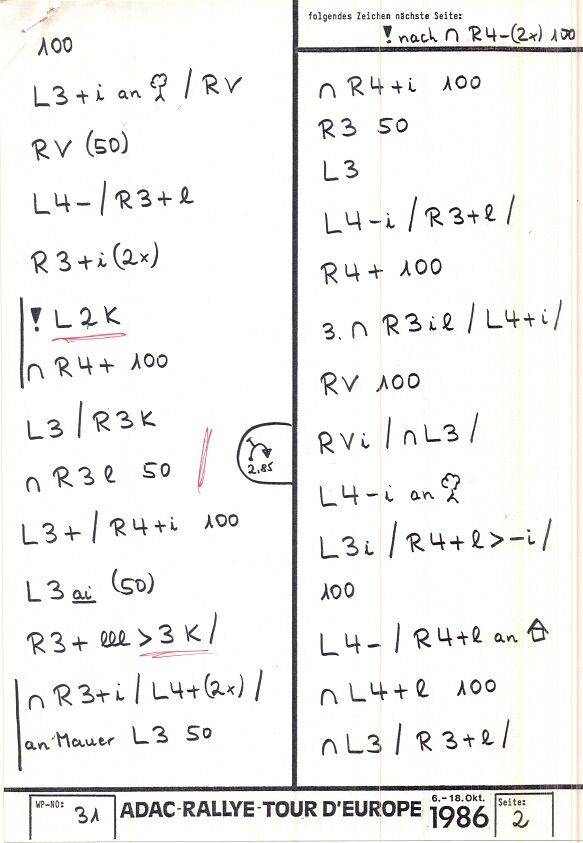 100
L3+i an / RV
RV (50)
L4- / R3+l
R3+i (2x)
! L2K
∩ R4+ 100
L3 / R3K
∩ R3l 50
2.85
L3+ / R4+i 100
L3 ai (50)
R3+ lll > 3K /
∩ R3+i / L4+(2x) /
an Mauer L3 50
folgendes Zeichen nächste Seite:
! nach ∩ R4-(2x) 100
∩ R4+i 100
R3 50
L3
L4-i / R3+l /
R4+ 100
3. ∩ R3il / L4+i /
RV 100
RVi / ∩L3 /
L4-i an
L3i / R4+l>-i /
100
L4- / R4+l an
∩ L4+l 100
∩ L3 / R3+l /
WP-NO: 31
ADAC-RALLYE-TOUR D'EUROPE
6.-18.Okt.
1986
Seite: 2